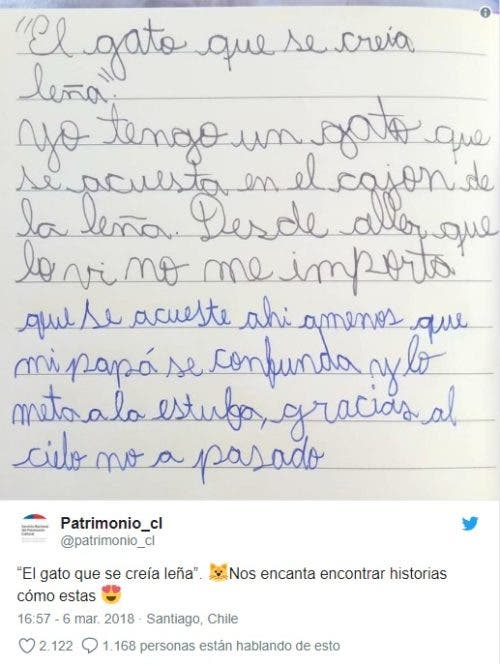 "El gato que se creía
leña".
Yo tengo un gato que
se acuesta en el cajon de
la leña. Desde aller que
lo vi no me importa
que se acueste ahi amenos que
mi papá se confunda y lo
meta a la estufa, gracias al
cielo no a pasado
Patrimonio_cl
@patrimonio_cl
“El gato que se creía leña”. 😺Nos encanta encontrar historias
cómo estas 😍
16:57 - 6 mar. 2018 · Santiago, Chile
2.122 1.168 personas están hablando de esto